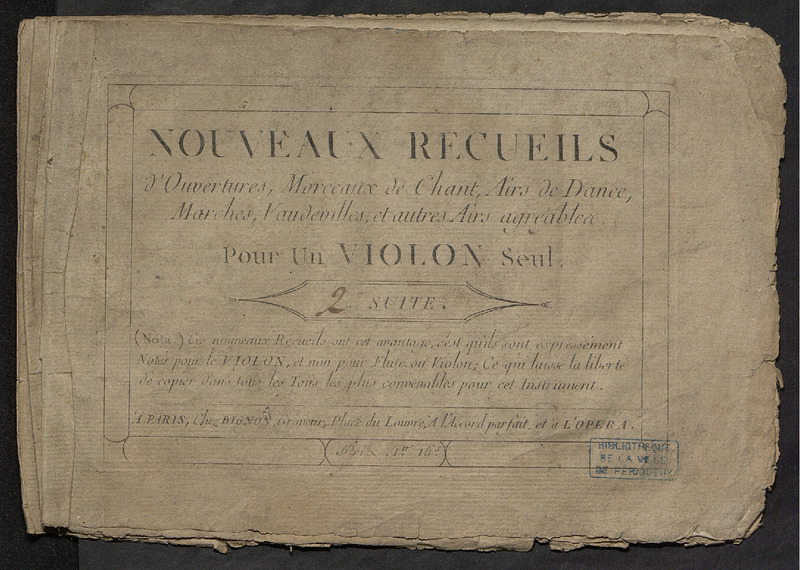 NOUVEAUX RECUEILS
d'Ouvertures, Morceaux de Chant, Airs de Dance,
Marches, Vaudevilles, et autres Airs agréables
Pour Un VIOLON Seul.
2. SUITE.
(Nota.) Ces nouveaux Recueils ont cet avantage, c'est qu'ils sont expressément
Notés pour le VIOLON, et non pour Flute ou Violon; Ce qui laisse la liberté
de copier dans tous les Tons les plus convenables pour cet Instrument.
A PARIS, Chez BIGNON, Graveur, Place du Louvre, A l'Accord parfait, et à L'OPERA.
Prix. 1.tt 16.s
BIBLIOTHEQUE
DE LA VILLE
DE PERIGUEUX